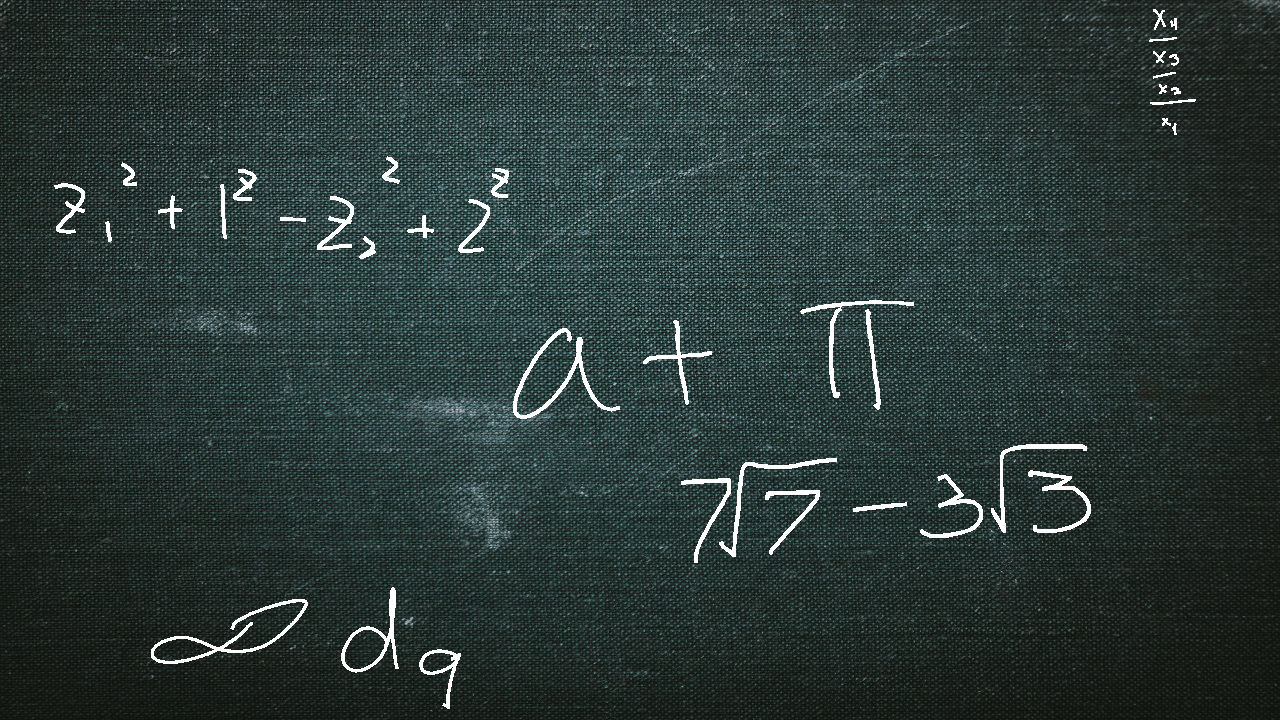 x₄/x₃/x₂/x₁
z₁² + 1^z − z₂² + 2^z
a + π
7√7 − 3√3
∞ d_q